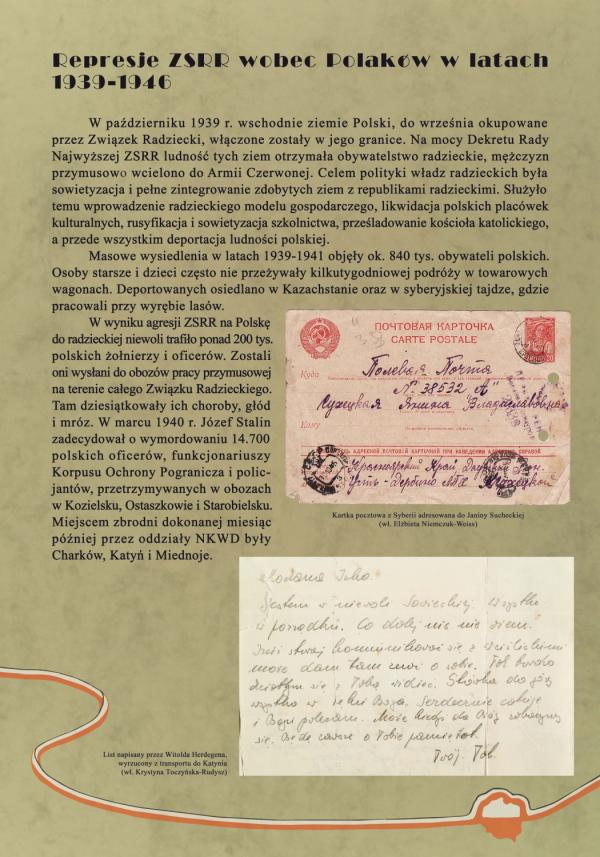 Represje ZSRR wobec Polaków w latach
1939-1946
W październiku 1939 r. wschodnie ziemie Polski, do września okupowane
przez Związek Radziecki, włączone zostały w jego granice. Na mocy Dekretu Rady
Najwyższej ZSRR ludność tych ziem otrzymała obywatelstwo radzieckie, mężczyzn
przymusowo wcielono do Armii Czerwonej. Celem polityki władz radzieckich była
sowietyzacja i pełne zintegrowanie zdobytych ziem z republikami radzieckimi. Służyło
temu wprowadzenie radzieckiego modelu gospodarczego, likwidacja polskich placówek
kulturalnych, rusyfikacja i sowietyzacja szkolnictwa, prześladowanie kościoła katolickiego,
a przede wszystkim deportacja ludności polskiej.
Masowe wysiedlenia w latach 1939-1941 objęły ok. 840 tys. obywateli polskich.
Osoby starsze i dzieci często nie przeżywały kilkutygodniowej podróży w towarowych
wagonach. Deportowanych osiedlano w Kazachstanie oraz w syberyjskiej tajdze, gdzie
pracowali przy wyrębie lasów.
W wyniku agresji ZSRR na Polskę
do radzieckiej niewoli trafiło ponad 200 tys.
polskich żołnierzy i oficerów. Zostali
oni wysłani do obozów pracy przymusowej
na terenie całego Związku Radzieckiego.
Tam dziesiątkowały ich choroby, głód
i mróz. W marcu 1940 r. Józef Stalin
zadecydował o wymordowaniu 14.700
polskich oficerów, funkcjonariuszy
Korpusu Ochrony Pogranicza i polic-
jantów, przetrzymywanych w obozach
w Kozielsku, Ostaszkowie i Starobielsku.
Miejscem zbrodni dokonanej miesiąc
później przez oddziały NKWD były
Charków, Katyń i Miednoje.
ПОЧТОВАЯ КАРТОЧКА
CARTE POSTALE
Куда Полевая Почта
№ 38532 "А"
Сухецкая Янина Владиславовна
Кому
АДРЕСНОЙ ПОЧТОВОЙ КАРТОЧКОЙ ПРИ НАВЕДЕНИИ АДРЕСНОЙ СПРАВОЙ
Красноярский Край
Kartka pocztowa z Syberii adresowana do Janiny Sucheckiej
(wł. Elżbieta Niemczuk-Weiss)
Kochana
Jestem w niewoli Sowieckiej. Wszystko
w porządku. Co dalej nic nie wiem.
komunikować się z
może dam tam znać o sobie. Tak bardzo
się z Tobą widzieć.
wszystko w ręku Boga. Serdecznie całuję
i Bogu polecam. Może kiedyś da Bóg zobaczymy
się. Będę zawsze o Tobie pamiętał.
Twój
List napisany przez Witolda Herdegena,
wyrzucony z transportu do Katynia
(wł. Krystyna Toczyńska-Rudysz)